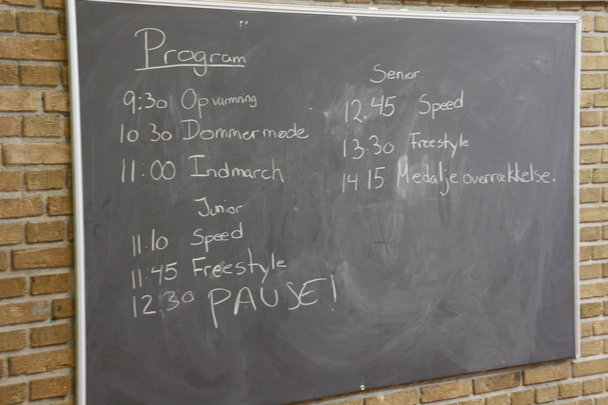 Program
9:30 Opvarmning
10:30 Dommermøde
11:00 Indmarch
Junior
11:10 Speed
11:45 Freestyle
12:30 PAUSE!
Senior
12:45 Speed
13:30 Freestyle
14:15 Medaljeoverrækkelse.